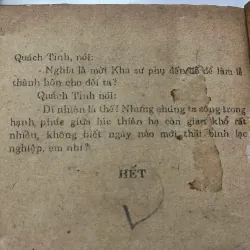 Quách Tĩnh, nói:
- Nghĩa là mời Kha sư phụ đến để làm lễ
thành hôn cho đôi ta?
Quách Tĩnh nói:
- Dĩ nhiên là thế! Nhưng chúng ta sống trong
hạnh phúc giữa lúc thiên hạ còn gian khổ rất
nhiều, không biết ngày nào mới thái bình lạc
nghiệp, em nhỉ?
HẾT